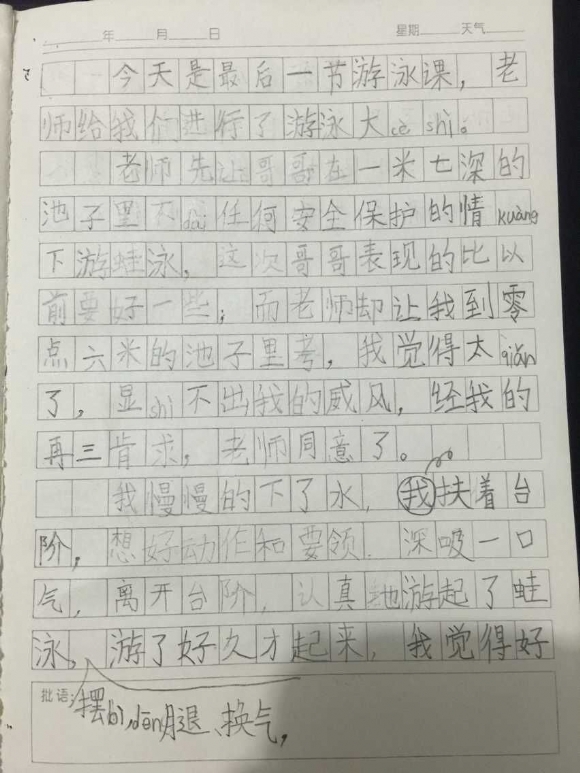 年 月 日 星期 天气
今天是最后一节游泳课，老
师给我们进行了游泳大cè shì。
老师先让哥哥在一米七深的
池子里不dài任何安全保护的情kuàng
下游蛙泳，这次哥哥表现的比以
前要好一些；而老师却让我到零
点六米的池子里考，我觉得太qiǎn
了，显shì不出我的威风，经我的
再三肯求，老师同意了。
我慢慢的下了水，我扶着台
阶，想好动作和要领．深吸一口
气，离开台阶，认真地游起了蛙
泳。游了好久才起来，我觉得好
批语：
摆bì，dēn腿、换气，